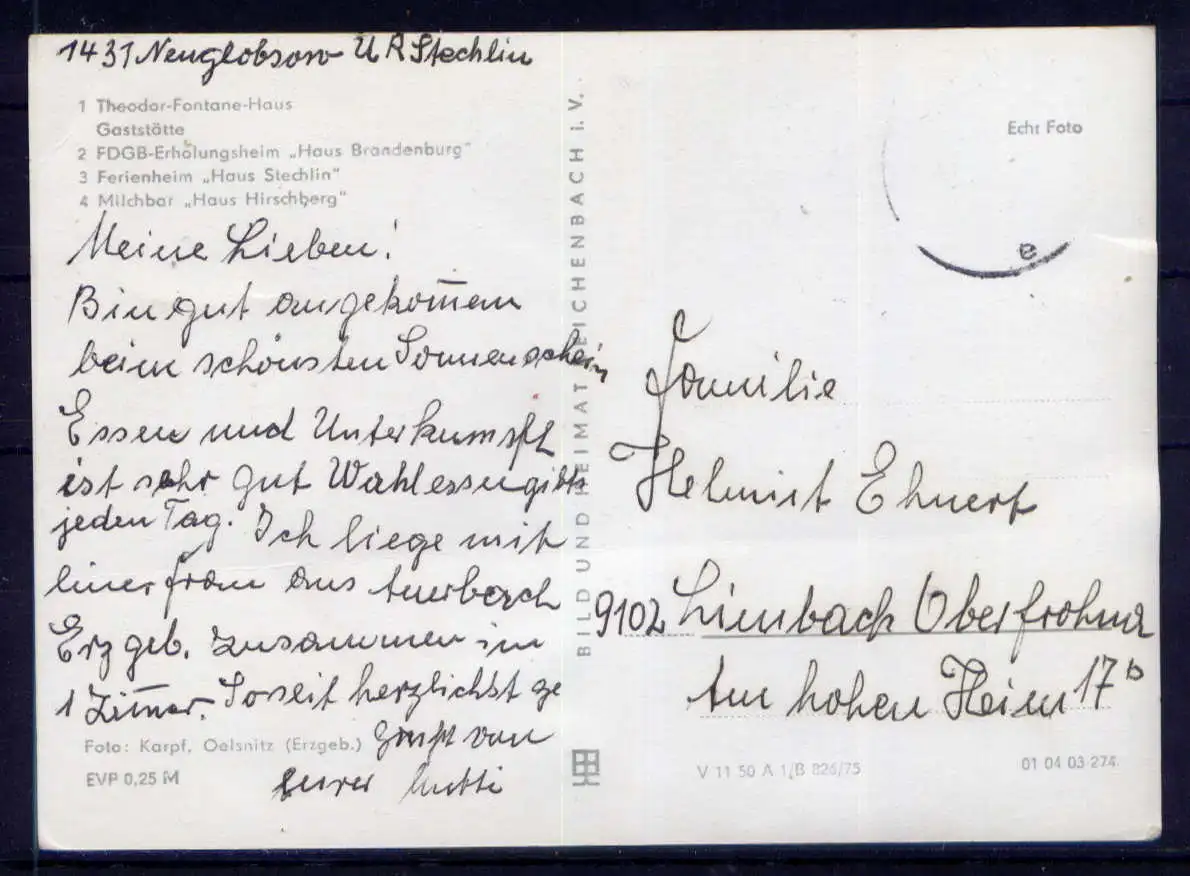 1431 Neuglobsow U R Stechlin
1 Theodor-Fontane-Haus
Gaststätte
2 FDGB-Erholungsheim „Haus Brandenburg"
3 Ferienheim „Haus Stechlin"
4 Milchbar „Haus Hirschberg"
Meine Lieben!
Bin gut angekom̅en
beim schönsten Sonnenschein
Essen und Unterkumpft
ist sehr gut Wahlessen gibts
jeden Tag. Ich liege mit
einer Frau aus Auerbach
Erzgeb. zusammen im
1 Zim̅er. So seit herzlichst ge
grüßt von
eurer Mutti
Foto: Karpf, Oelsnitz (Erzgeb.)
EVP 0,25 M
BILD UND HEIMAT REICHENBACH I. V.
Echt Foto
e
Familie
Helmut Ehnert
9102 Limbach Oberfrohna
Am hohen Hein 17b
V 11 50 A 1/B 826/75
01 04 03 274